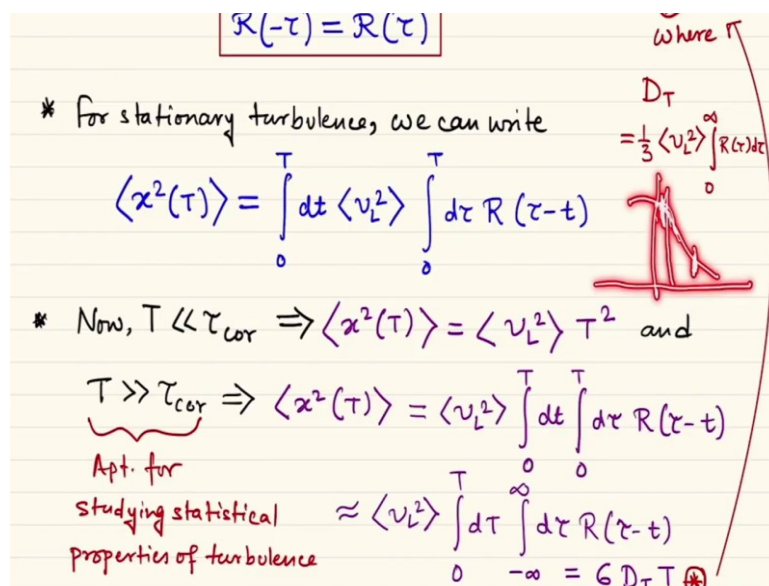 R(-τ) = R(τ)
where
* For stationary turbulence, we can write
D_T
= 1/3 ⟨v_L²⟩ ∫₀^∞ R(τ)dτ
⟨x²(T)⟩ = ∫₀^T dt ⟨v_L²⟩ ∫₀^T dτ R(τ-t)
* Now, T ≪ τ_cor ⇒ ⟨x²(T)⟩ = ⟨v_L²⟩ T² and
T ≫ τ_cor ⇒ ⟨x²(T)⟩ = ⟨v_L²⟩ ∫₀^T dt ∫₀^T dτ R(τ-t)
Apt. for
studying statistical
properties of turbulence
≈ ⟨v_L²⟩ ∫₀^T dT ∫_{-∞}^∞ dτ R(τ-t)
= 6 D_T T ⊛